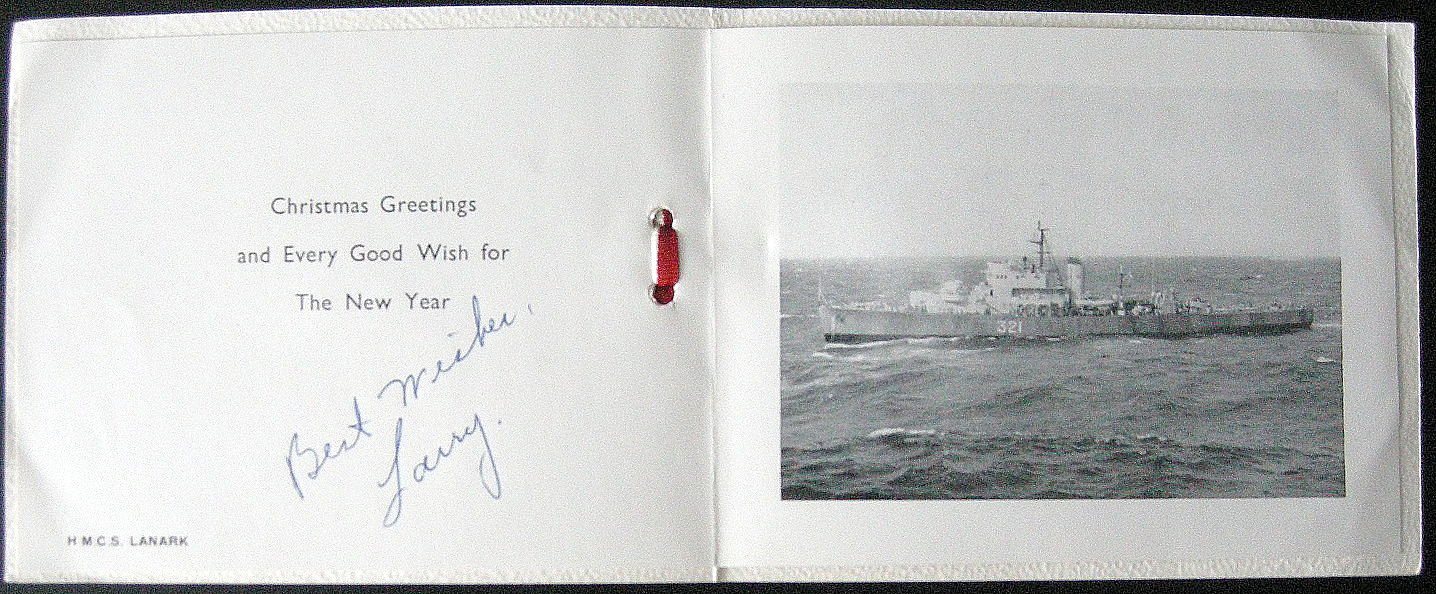 Christmas Greetings
and Every Good Wish for
The New Year
Best Wishes,
Larry.
H M C.S. LANARK
321